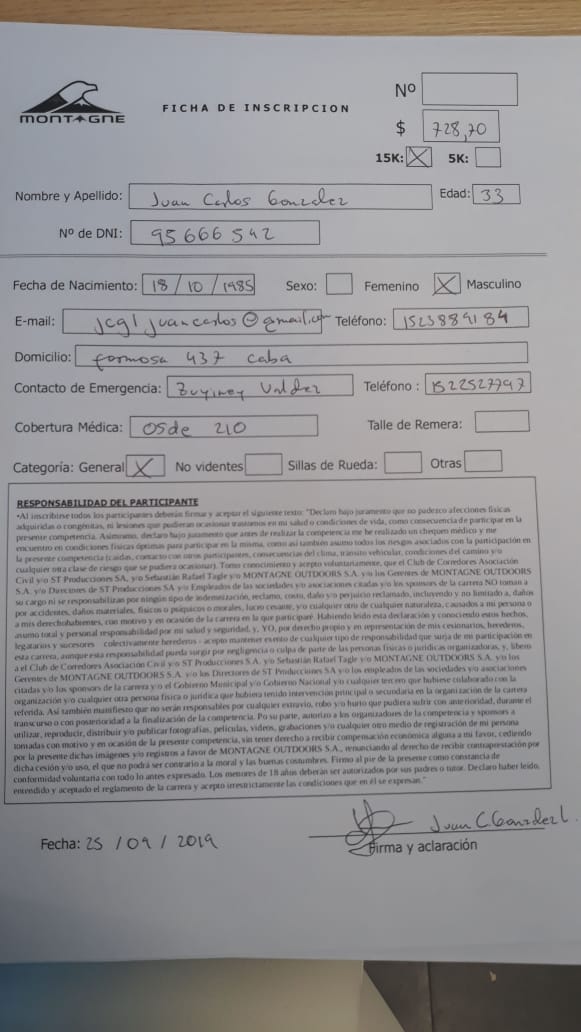 MONTAGNE
FICHA DE INSCRIPCION
Nº
$ 728,70
15K: X 5K:
Nombre y Apellido: Juan Carlos Gonzalez Edad: 33
Nº de DNI: 95666542
Fecha de Nacimiento: 18/10/1985 Sexo: Femenino X Masculino
E-mail: jcgljuancarlos@gmail.com Teléfono: 1523889184
Domicilio: formosa 437 caba
Contacto de Emergencia: Valdez Teléfono: 1522527797
Cobertura Médica: osde 210 Talle de Remera:
Categoría: General X No videntes Sillas de Rueda: Otras
RESPONSABILIDAD DEL PARTICIPANTE
•Al inscribirse todos los participantes deberán firmar y aceptar el siguiente texto: "Declaro bajo juramento que no padezco afecciones físicas
adquiridas o congénitas, ni lesiones que pudieran ocasionar trastornos en mi salud o condiciones de vida, como consecuencia de participar en la
presente competencia. Asimismo, declaro bajo juramento que antes de realizar la competencia me he realizado un chequeo médico y me
encuentro en condiciones físicas óptimas para participar en la misma, como así también asumo todos los riesgos asociados con la participación en
la presente competencia (caídas, contacto con otros participantes, consecuencias del clima, tránsito vehicular, condiciones del camino y/o
cualquier otra clase de riesgo que se pudiera ocasionar). Tomo conocimiento y acepto voluntariamente, que el Club de Corredores Asociación
Civil y/o ST Producciones SA, y/o Sebastián Rafael Tagle y/o MONTAGNE OUTDOORS S.A. y/o los Gerentes de MONTAGNE OUTDOORS
S.A. y/o Directores de ST Producciones SA y/o Empleados de las sociedades y/o asociaciones citadas y/o los sponsors de la carrera NO toman a
su cargo ni se responsabilizan por ningún tipo de indemnización, reclamo, costo, daño y/o perjuicio reclamado, incluyendo y no limitado a, daños
por accidentes, daños materiales, físicos o psíquicos o morales, lucro cesante, y/o cualquier otro de cualquier naturaleza, causados a mi persona o
a mis derechohabientes, con motivo y en ocasión de la carrera en la que participaré. Habiendo leído esta declaración y conociendo estos hechos,
asumo total y personal responsabilidad por mi salud y seguridad, y, YO, por derecho propio y en representación de mis cesionarios, herederos,
legatarios y sucesores - colectivamente herederos - acepto mantener exento de cualquier tipo de responsabilidad que surja de mi participación en
esta carrera, aunque esta responsabilidad pueda surgir por negligencia o culpa de parte de las personas físicas o jurídicas organizadoras, y, libero
a el Club de Corredores Asociación Civil y/o ST Producciones S.A. y/o Sebastián Rafael Tagle y/o MONTAGNE OUTDOORS S.A. y/o los
Gerentes de MONTAGNE OUTDOORS S.A. y/o los Directores de ST Producciones SA y/o los empleados de las sociedades y/o asociaciones
citadas y/o los sponsors de la carrera y/o el Gobierno Municipal y/o Gobierno Nacional y/o cualquier tercero que hubiese colaborado con la
organización y/o cualquier otra persona física o jurídica que hubiera tenido intervención principal o secundaria en la organización de la carrera
referida. Así también manifiesto que no serán responsables por cualquier extravío, robo y/o hurto que pudiera sufrir con anterioridad, durante el
transcurso o con posterioridad a la finalización de la competencia. Po su parte, autorizo a los organizadores de la competencia y sponsors a
utilizar, reproducir, distribuir y/o publicar fotografías, películas, videos, grabaciones y/o cualquier otro medio de registración de mi persona
tomadas con motivo y en ocasión de la presente competencia, sin tener derecho a recibir compensación económica alguna a mi favor, cediendo
por la presente dichas imágenes y/o registros a favor de MONTAGNE OUTDOORS S.A., renunciando al derecho de recibir contraprestación por
dicha cesión y/o uso, el que no podrá ser contrario a la moral y las buenas costumbres. Firmo al pie de la presente como constancia de
conformidad voluntaria con todo lo antes expresado. Los menores de 18 años deberán ser autorizados por sus padres o tutor. Declaro haber leído,
entendido y aceptado el reglamento de la carrera y acepto irrestrictamente las condiciones que en él se expresan."
Juan C Gonzalez L.
Fecha: 25 / 09 / 2019 Firma y aclaración